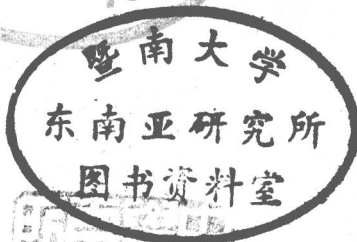 暨南大学
东南亚研究所
图书资料室